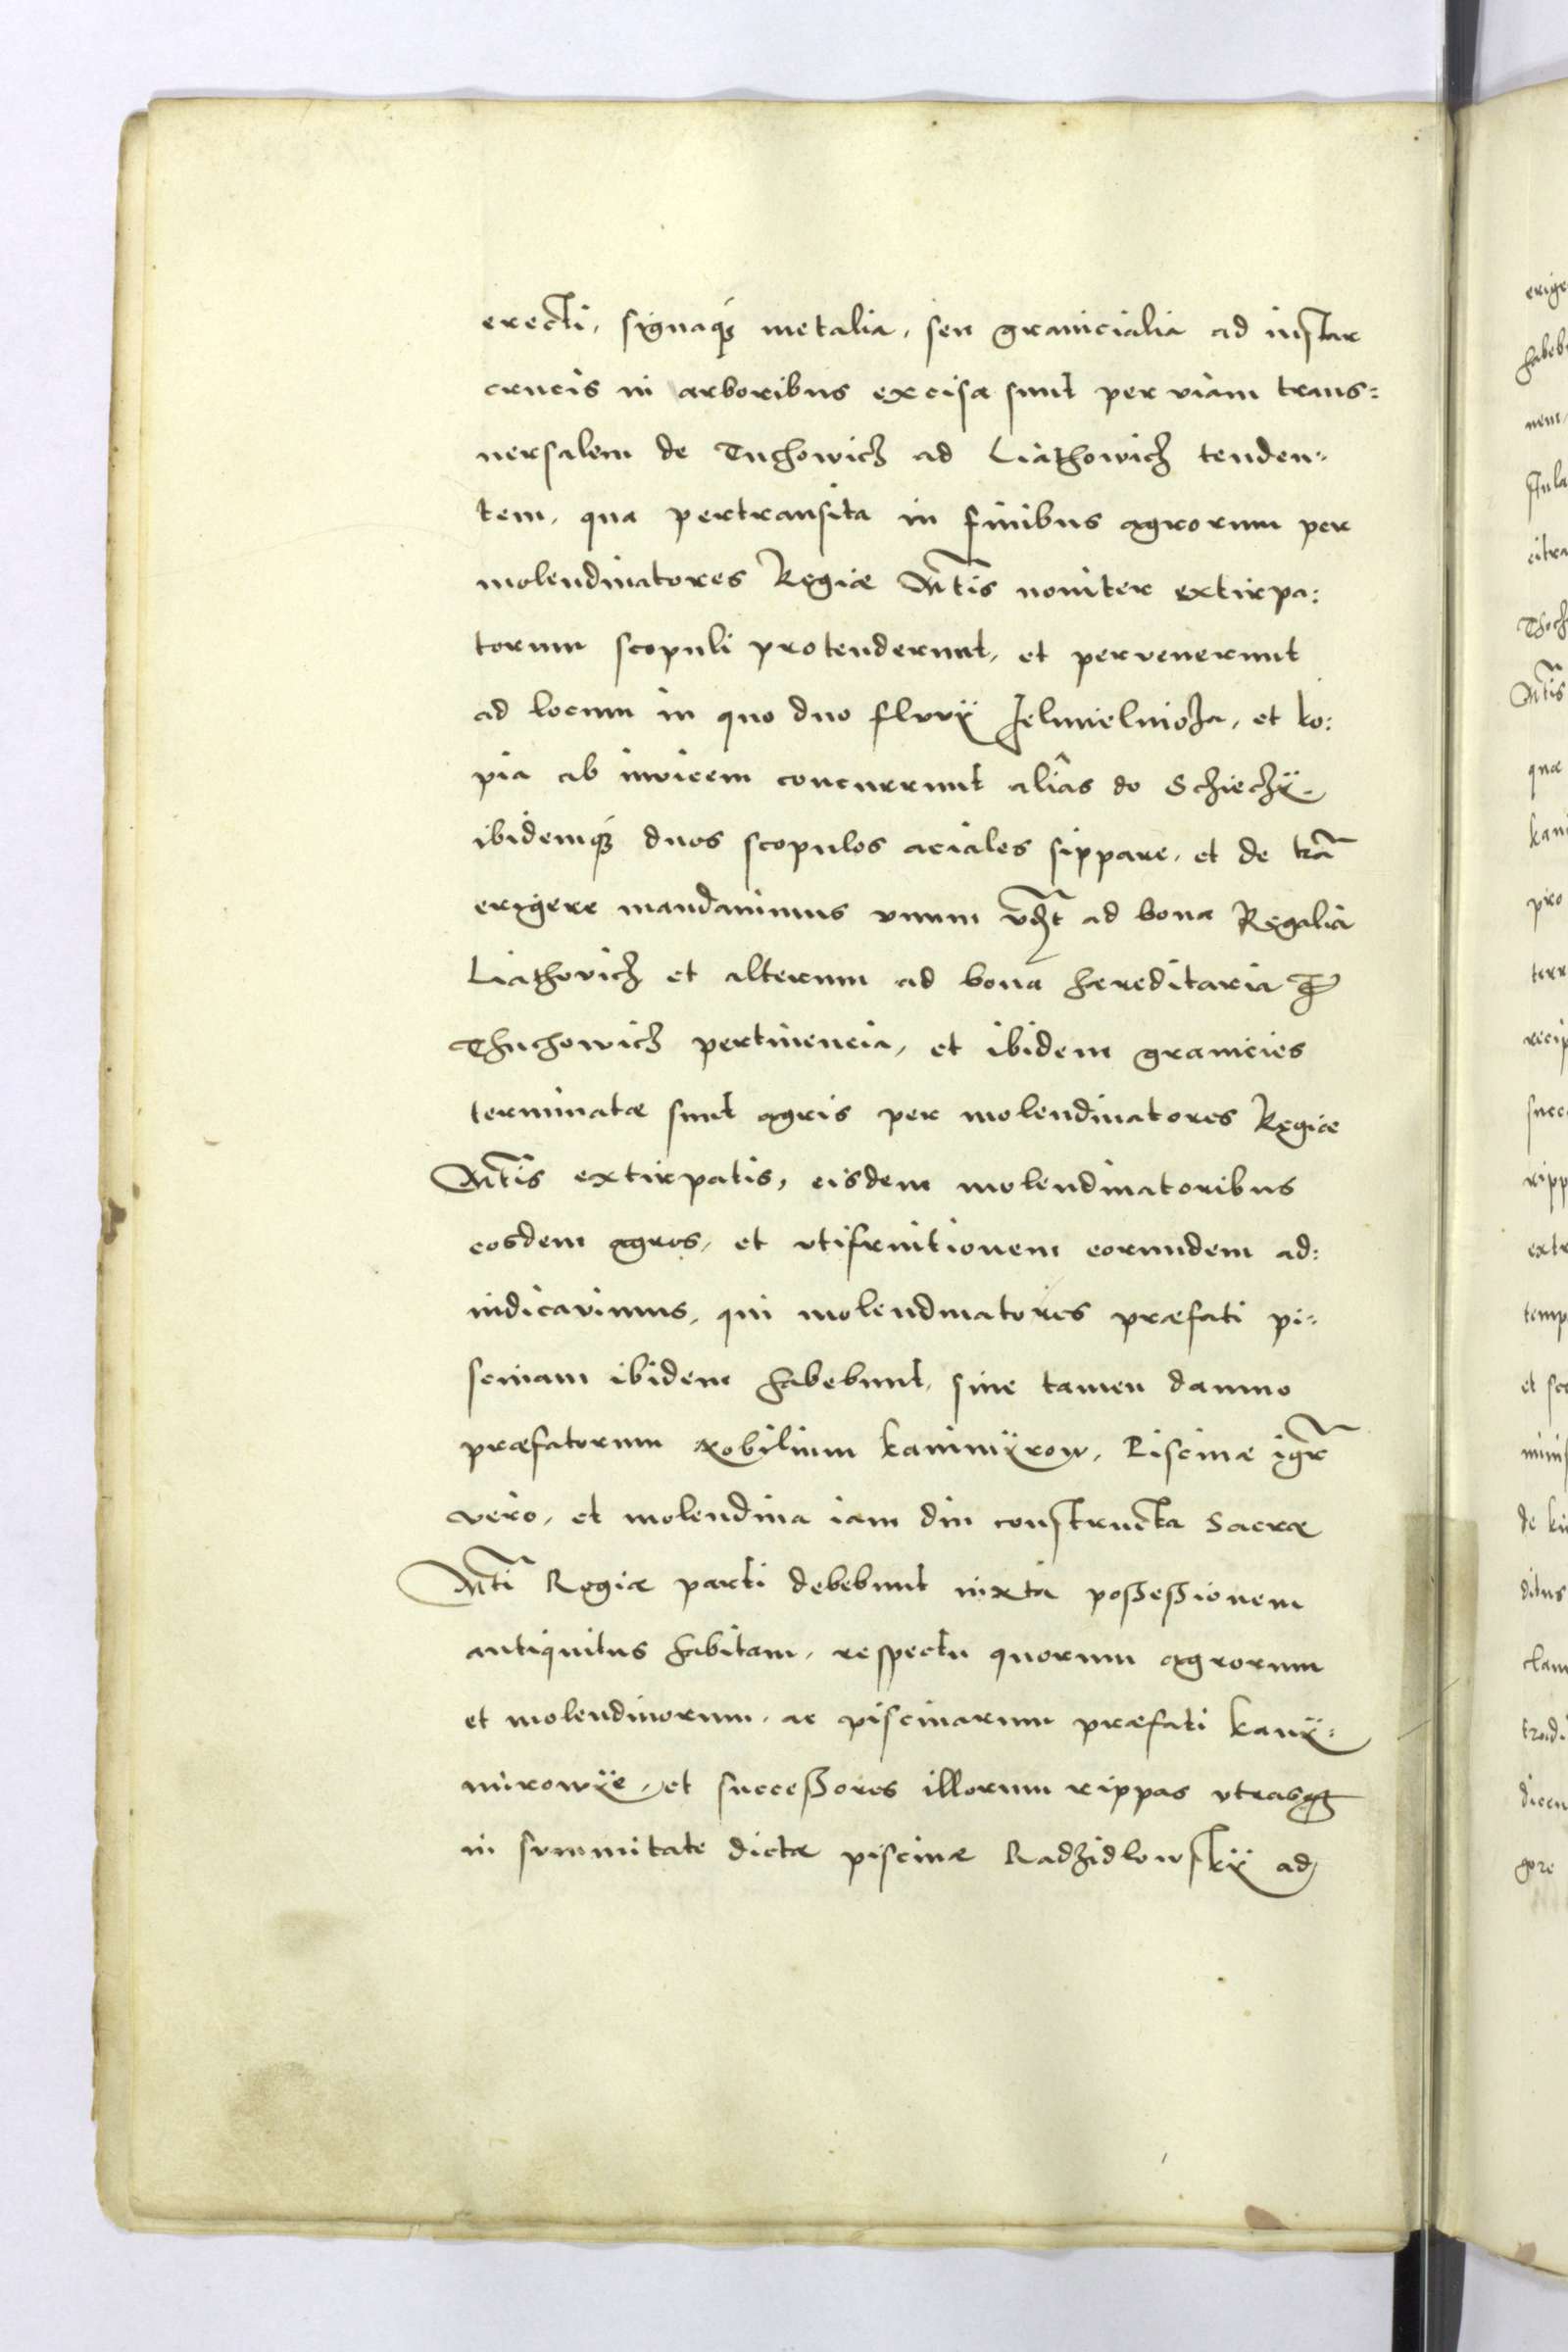 erecti, signaq́ue metalia, seu granicialia ad instar
crucis in arboribus excisa sunt per viam trans=
uersalem de Tuchowicz ad Liathowicz tenden=
tem, qua pertransita in finibus agrorum per
molendinatores Regiæ Mtis nouiter extirpa:
torum scopuli protenderunt, et pervenerunt
ad locum in quo duo fluvÿ Jelmielnicza, et ko:
pia ab invicem concurrunt aliâs do Schiechÿ.
ibidemq́ue duos scopulos aciales sippare, et de tra
erigere mandauimus vnum vdzt ad bona Regalia
Liathovicz et alterum ad bona hereditaria
Thuchowicz pertinencia, et ibidem granicies
terminatæ sunt agris per molendinatores Regiæ
Mtis extirpatis, eisdem molendinatoribus
eosdem agros, et vtifruitionem eorundem ad:
iudicavimus, qui molendinatores præfati pi=
scinam ibidem habebunt, sine tamen damno
præfatorum Nobilium kanimÿrow, Piscinæ igr
vero, et molendina iam diu constructa Sacræ
Mti Regiæ parti debebunt iuxta possessionem
antiquitus habitam, respectu quorum agrorum
et molendinorum, ac piscinarum præfati kanÿ=
mirowÿe, et successores illorum rippas vtrasq
in summitate dictæ piscinæ Radzidlowskÿ ad